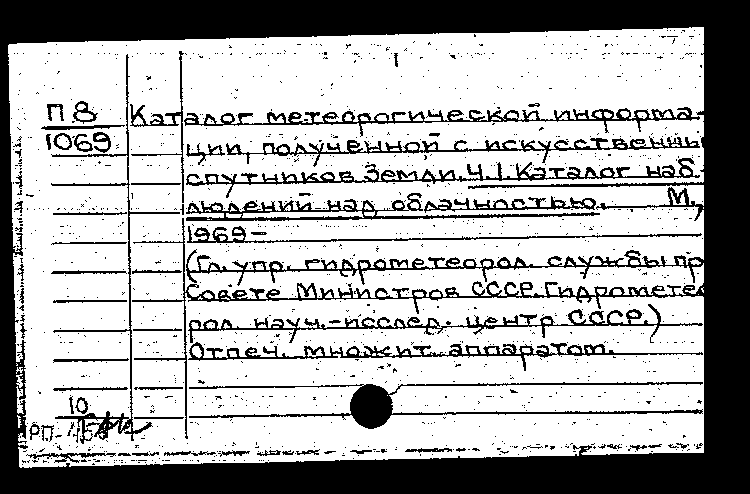 П8 Каталог метеорогической информа-
1069 ции, полученной с искусственны
спутников Земли. Ч.1. Каталог наб-
людений над облачностью. М.,
1969-
(Гл. упр. гидрометеорол. службы пр
Совете Министров СССР. Гидрометео
рол. науч.-исслед. центр СССР.)
Отпеч. множит. аппаратом.
10
РП-